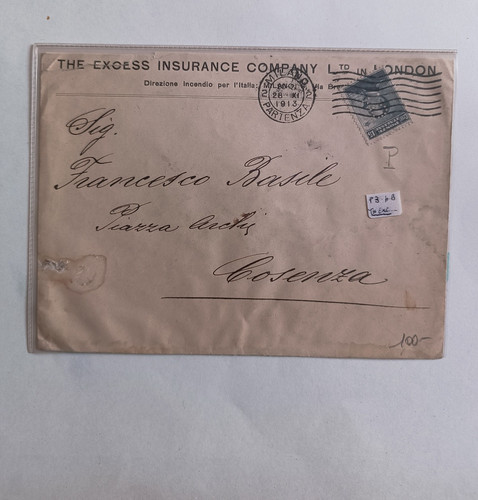 THE EXCESS INSURANCE COMPANY LTD IN LONDON
Direzione Incendio per l'Italia: MILANO,
MILANO
26 XI
1913
PARTENZA
Sig.
Francesco Basile
Piazza
Cosenza
P
100-